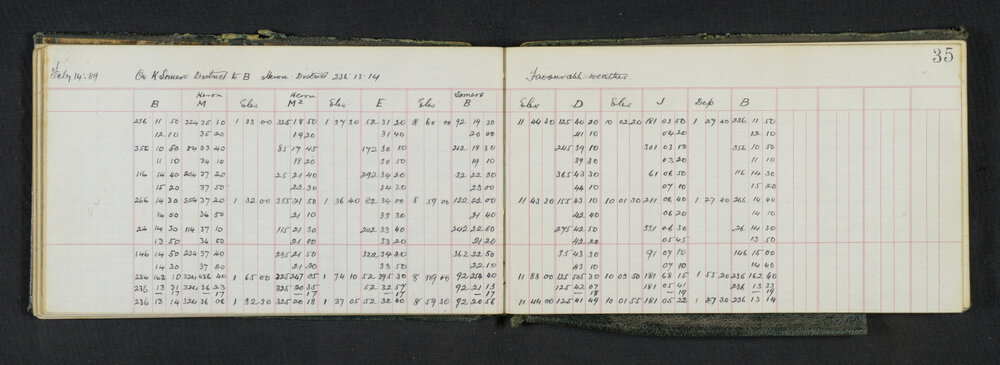 35
1
Feby 14. 89 On K Somers District to B Heron District 236·13·14 Favourable weather
Heron Heron Somers
B M Elev M² Elev E Elev B Elev D Elev J Dep B
236 11 50 324 35 10 1 33 00 325 18 50 1 37 30 52 31 20 8 60 00 92 19 30 11 44 30 125 40 20 10 02 20 181 03 50 1 27 40 236 11 50
12 10 35 20 19 20 31 40 20 00 41 10 04 20 12 10
356 10 50 84 33 40 85 17 45 172 30 10 212 18 30 245 39 10 301 03 10 356 10 50
11 10 34 10 18 20 30 50 19 10 39 30 03 20 11 10
116 14 40 204 37 20 25 21 40 292 34 20 32 22 30 365 43 30 61 06 50 116 14 30
15 20 37 50 22 30 34 30 23 00 44 10 07 10 15 20
266 14 30 354 37 20 1 32 00 355 21 50 1 36 40 82 34 00 8 59 00 122 22 00 11 43 30 155 43 10 10 01 30 211 06 40 1 27 40 266 14 40
14 00 36 50 21 10 33 30 21 40 42 40 06 20 14 10
26 14 30 114 37 10 115 21 30 202 33 40 242 22 00 275 42 50 331 06 30 26 14 30
13 50 36 50 21 00 33 20 21 20 42 20 05 45 13 50
146 14 50 234 37 40 235 21 50 322 34 20 362 22 50 35 43 30 91 07 10 146 15 00
14 30 37 20 21 20 33 50 22 10 43 10 07 10 14 40
236 162 10 324 436 40 1 65 00 325 247 05 1 74 10 52 395 30 8 119 00 11 88 00 125 505 30 10 03 50 181 68 15 1 55 20 236 162 40
236 13 31 324 36 23 325 20 35 52 32 57 92 21 13 125 42 07 181 05 41 236 13 33
— 17 — 17 — 17 — 17 — 17 — 18 — 19 — 19
236 13 14 324 36 06 1 32 30 325 20 18 1 37 05 52 32 40 8 59 30 92 20 56 11 44 00 125 41 49 10 01 55 181 05 22 1 27 30 236 13 14